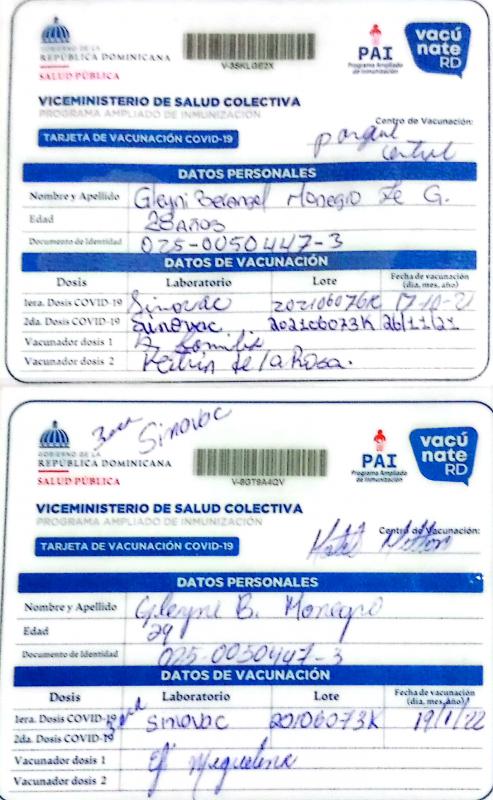 GOBIERNO DE LA
REPÚBLICA DOMINICANA
SALUD PÚBLICA
V-3SKLGE2X
PAI
Programa Ampliado
de Inmunización
vacú
nate
RD
VICEMINISTERIO DE SALUD COLECTIVA
PROGRAMA AMPLIADO DE INMUNIZACIÓN
Centro de Vacunación:
parque
central
TARJETA DE VACUNACIÓN COVID-19
DATOS PERSONALES
Nombre y Apellido Gleyni Berangel Monegro De G.
Edad 28 AÑOS
Documento de Identidad 025-0050447-3
DATOS DE VACUNACIÓN
Dosis Laboratorio Lote Fecha de vacunación
(dia, mes, año)
1era. Dosis COVID-19 Sinovac 202106076K 17-10-21
2da. Dosis COVID-19 Sinovac 202106073K 26/11/21
Vacunador dosis 1
Vacunador dosis 2 de la Rosa.
3era Sinovac
GOBIERNO DE LA
REPÚBLICA DOMINICANA
SALUD PÚBLICA
V-8GT9A4QV
PAI
Programa Ampliado
de Inmunización
vacú
nate
RD
VICEMINISTERIO DE SALUD COLECTIVA
PROGRAMA AMPLIADO DE INMUNIZACIÓN
Centro de Vacunación:
TARJETA DE VACUNACIÓN COVID-19
DATOS PERSONALES
Nombre y Apellido Gleyni B. Monegro
Edad 29
Documento de Identidad 025-0050447-3
DATOS DE VACUNACIÓN
Dosis Laboratorio Lote Fecha de vacunación
(dia, mes, año)
1era. Dosis COVID-19 3era Sinovac 20106073K 19/1/22
2da. Dosis COVID-19
Vacunador dosis 1
Vacunador dosis 2